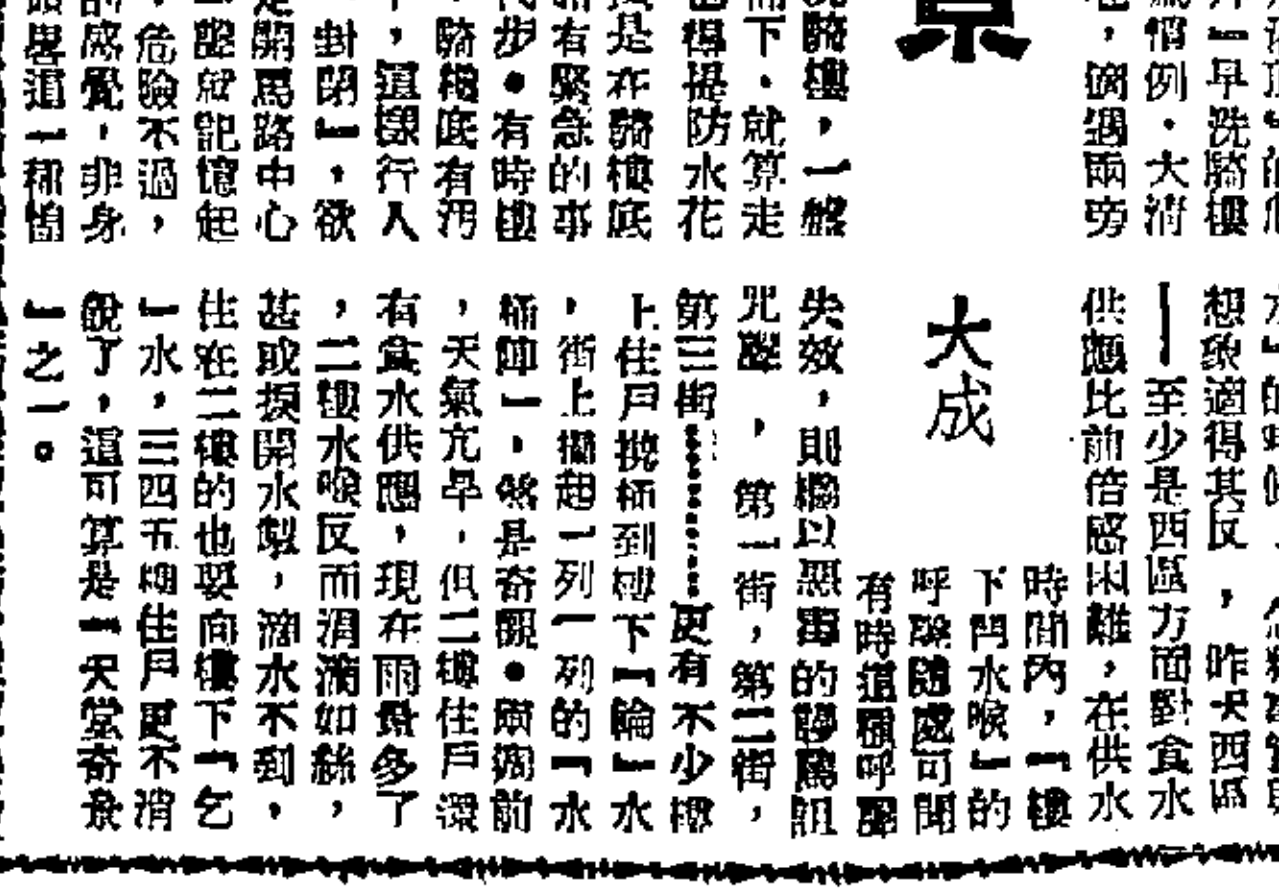 」早洗騎樓
慣例．大清
，適遇兩旁
景
騎樓，一盤
而下．就算走
也得提防水花
是在騎樓底
有緊急的事
步．有時樓
，騎樓底有污
，這樣行人
封閉」，欲
開馬路中心
聲就記憶起
，危險不過，
的感覺，非身
這一種
想象適得其反，昨天西區
——至少是西區方面對食水
供應比前倍感困難，在供水
時間內，「樓
下閂水喉」的
呼聲隨處可聞
有時這種呼聲
大成
失效，則繼以惡毒的辱罵詛
咒聲，第一街，第二街，
第三街…………更有不少樓
上住戶挽桶到樓下「輪」水
，街上擺起一列一列的「水
桶陣」，煞是奇觀．兩週前
，天氣亢旱，但二樓住戶還
有食水供應，現在雨量多了
，二樓水喉反而涓滴如絲，
甚或扳開水掣，滴水不到，
住在二樓的也要向樓下「乞
」水，三四五樓住戶更不消
說了，這可算是「天堂奇景
」之一。